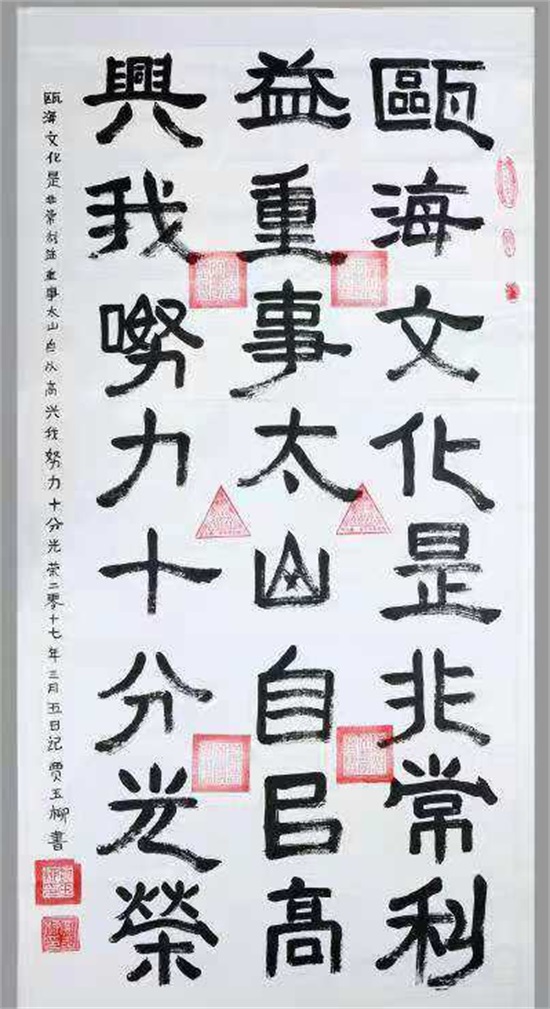 甌海文化是非常利
益重事太山自㠯高
興我嘮力十分光榮
瓯海文化是非常利益重事太山自以高兴我努力十分光荣二零十七年三月五日记 贾玉柳書